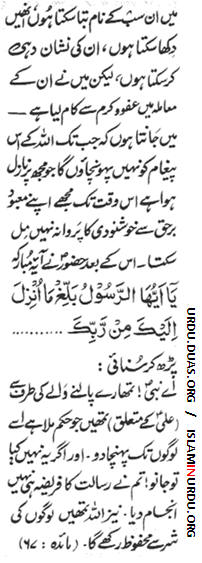 میں ان سب کے نام بتا سکتا ہوں انھیں
دکھا سکتا ہوں، ان کی نشان دہی
کر سکتا ہوں، لیکن میں نے ان کے
معاملہ میں عفو و کرم سے کام لیا ہے —
میں جانتا ہوں کہ جب تک اللہ کے اُس
پیغام کو نہیں پہونچاؤں گا جو مجھ پر نازل
ہوا ہے اس وقت تک مجھے اپنے معبودِ
برحق سے خوشنودی کا پروانہ نہیں مِل
سکتا۔ اس کے بعد حضورؐ نے آیۂ مبارکہ
يَا اَيُّهَا الرَّسُولُ بَلِّغْ مَا اُنْزِلَ
اِلَيْكَ مِنْ رَبِّكَ ...........
پڑھ کر سُنائی :
اَے نبیؐ! تمھارے پالنے والے کی طرف سے
(علیؑ کے متعلق) تمھیں جو حکم ملا ہے اسے
لوگوں تک پہنچا دو۔ اور اگر یہ نہیں کیا
تو جانو! تم نے رسالت کا فریضہ ہی نہیں
انجام دیا۔ نیز اللہ تمھیں لوگوں کی
شر سے محفوظ رکھے گا۔ (مائدہ : ۶۷)
URDU.DUAS.ORG / ISLAMINURDU.ORG